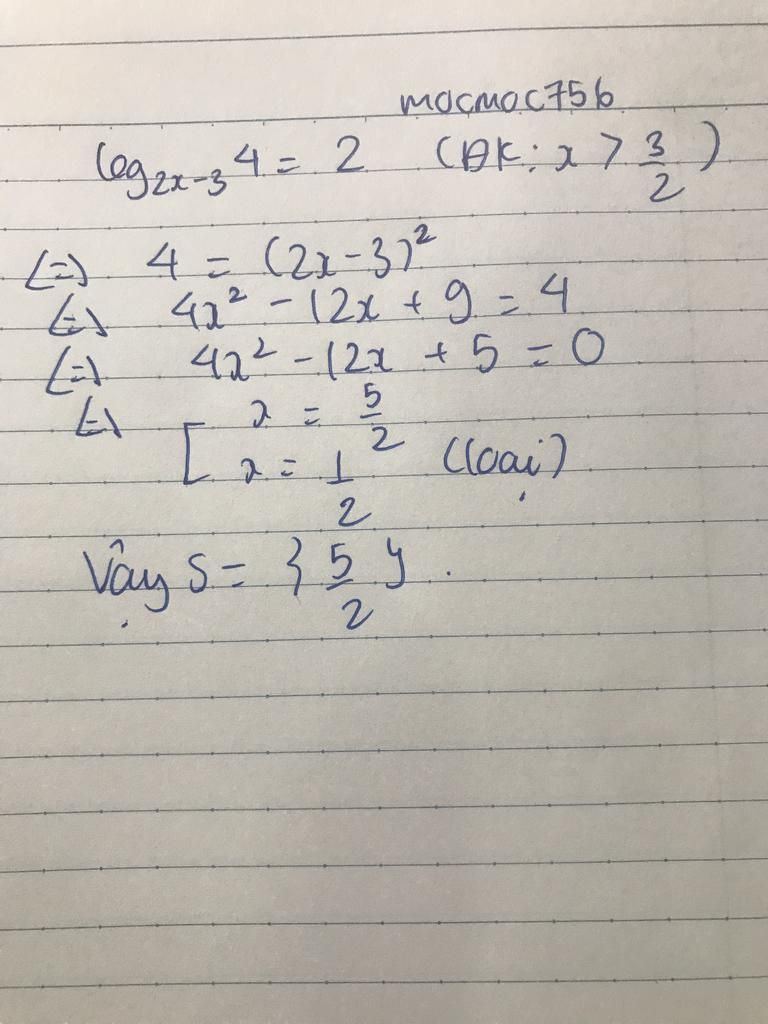 mocmoc75b
log₂ₓ₋₃ 4 = 2 (ĐK: x > 3/2)
<=> 4 = (2x-3)²
<=> 4x² - 12x + 9 = 4
<=> 4x² - 12x + 5 = 0
<=> [ x = 5/2
x = 1/2 (loại)
Vậy S = { 5/2 }.